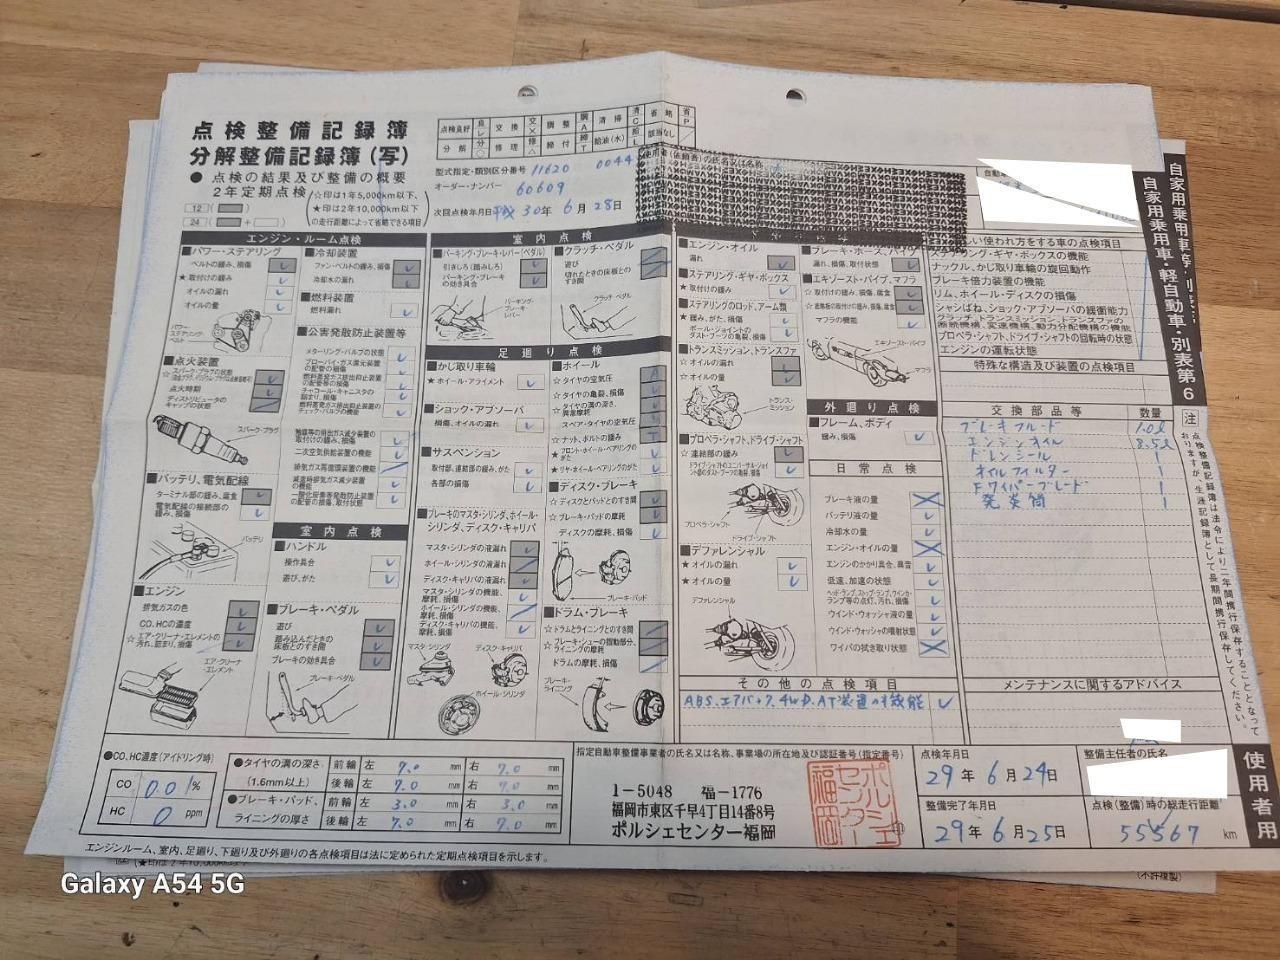 点検整備記録簿
分解整備記録簿(写)
● 点検の結果及び整備の概要
2年定期点検
☆印は1年5,000km以下、
★印は2年10,000km以下
の走行距離によって省略できる項目
12
24 +
点検良好 レ 交換 × 調整 A 清掃 C 省略 P
分解 ○ 修理 △ 締付 T 給油(水) L 該当なし /
型式指定・類別区分番号 11620 0044
オーダーナンバー 60609
次回点検年月日 平成 30年 6月 28日
使用者(依頼者)の氏名又は名称
エンジン・ルーム点検
■パワー・ステアリング
ベルトの緩み、損傷 レ
★ 取付けの緩み レ
オイルの漏れ レ
オイルの量 レ
パワー・ステアリング・ベルト
■点火装置
☆ スパーク・プラグの状態 レ
点火時期 レ
ディストリビュータのキャップの状態 /
スパーク・プラグ
■バッテリ、電気配線
ターミナル部の緩み、腐食 レ
電気配線の接続部の緩み、損傷 レ
バッテリ
■エンジン
排気ガスの色 レ
CO、HCの濃度 レ
☆ エア・クリーナ・エレメントの汚れ、詰まり、損傷 レ
エア・クリーナ・エレメント
■冷却装置
ファン・ベルトの緩み、損傷 レ
冷却水の漏れ レ
■燃料装置
燃料漏れ レ
■公害発散防止装置等
メターリング・バルブの状態 レ
ブローバイ・ガス還元装置の配管の損傷 レ
燃料蒸発ガス排出抑止装置の配管等の損傷 レ
チャコール・キャニスタの詰まり、損傷 レ
燃料蒸発ガス排出抑止装置のチェック・バルブの機能 レ
触媒等の排出ガス減少装置の取付けの緩み、損傷 レ
二次空気供給装置の機能 レ
排気ガス再循環装置の機能 /
減速時排気ガス減少装置の機能 レ
一酸化炭素等発散防止装置の配管の損傷、取付状態 レ
室内点検
■ハンドル
操作具合 レ
遊び、がた レ
■ブレーキ・ペダル
遊び レ
踏み込んだときの床板とのすき間 レ
ブレーキの効き具合 レ
ブレーキ・ペダル
室内点検
■パーキング・ブレーキ・レバー(ペダル)
引きしろ(踏みしろ) レ
パーキング・ブレーキの効き具合 レ
パーキング・ブレーキ・レバー
■クラッチ・ペダル
遊び /
切れたときの床板とのすき間 /
クラッチ・ペダル
足廻り点検
■かじ取り車輪
★ ホイール・アライメント レ
■ショック・アブソーバ
損傷、オイルの漏れ レ
■サスペンション
取付部、連結部の緩み、がた レ
各部の損傷 レ
■ブレーキのマスタ・シリンダ、ホイール・シリンダ、ディスク・キャリパ
マスタ・シリンダの液漏れ レ
ホイール・シリンダの液漏れ /
ディスク・キャリパの液漏れ レ
マスタ・シリンダの機能、摩耗、損傷 レ
ホイール・シリンダの機能、摩耗、損傷 /
ディスク・キャリパの機能、摩耗、損傷 レ
マスタ・シリンダ
ディスク・キャリパ
ホイール・シリンダ
■ホイール
☆ タイヤの空気圧 A
☆ タイヤの亀裂、損傷 レ
☆ タイヤの溝の深さ、異常摩耗 レ
スペア・タイヤの空気圧
☆ ナット、ボルトの緩み T
★ フロント・ホイール・ベアリングのがた レ
★ リヤ・ホイール・ベアリングのがた レ
■ディスク・ブレーキ
☆ ディスクとパッドとのすき間 レ
☆ ブレーキ・パッドの摩耗 レ
ディスクの摩耗、損傷 レ
ブレーキ・パッド
■ドラム・ブレーキ
☆ ドラムとライニングとのすき間 /
☆ ブレーキ・シューの摺動部分、ライニングの摩耗 /
ドラムの摩耗、損傷 /
ブレーキ・ライニング
■エンジン・オイル
漏れ レ
■ステアリング・ギヤ・ボックス
★ 取付けの緩み レ
■ステアリングのロッド、アーム類
★ 緩み、がた、損傷 レ
ボール・ジョイントのダスト・ブーツの亀裂、損傷 レ
■トランスミッション、トランスファ
☆ オイルの漏れ レ
☆ オイルの量 レ
トランス・ミッション
■プロペラ・シャフト、ドライブ・シャフト
☆ 連結部の緩み レ
ドライブ・シャフトのユニバーサル・ジョイント部のダスト・ブーツの亀裂、損傷 レ
プロペラ・シャフト
ドライブ・シャフト
■デファレンシャル
★ オイルの漏れ レ
★ オイルの量 レ
デファレンシャル
■ブレーキ・ホース、パイプ
漏れ、損傷、取付状態 レ
■エキゾースト・パイプ、マフラ
☆ 取付けの緩み、損傷、腐食 レ
☆ 遮熱板の取付けの緩み、損傷、腐食 レ
マフラの機能 レ
エキゾースト・パイプ
マフラ
外廻り点検
■フレーム、ボディ
緩み、損傷 レ
日常点検
ブレーキ液の量 ×
バッテリ液の量 レ
冷却水の量 レ
エンジン・オイルの量 ×
エンジンのかかり具合、異音 レ
低速、加速の状態 レ
ヘッドランプ、ストップ・ランプ、ウインカ・ランプ等の点灯、汚れ、損傷 レ
ウインド・ウォッシャ液の量 レ
ウインド・ウォッシャの噴射状態 レ
ワイパの拭き取り状態 ×
その他の点検項目
ABS、エアバッグ、4WD、AT装置の機能 レ
しい使われ方をする車の点検項目
ステアリング・ギヤ・ボックスの機能
ナックル、かじ取り車輪の旋回動作
ブレーキ倍力装置の機能
リム、ホイール・ディスクの損傷
シャシばね、ショック・アブソーバの緩衝能力
クラッチ、トランスミッション、トランスファの断続機構、変速機構、動力分配機構の機能
プロペラ・シャフト、ドライブ・シャフトの回転時の状態
エンジンの運転状態
特殊な構造及び装置の点検項目
交換部品等 数量
ブレーキフルード 1.0ℓ
エンジンオイル 8.5ℓ
ドレンシール 1
オイルフィルター 1
Fワイパーブレード 1
発炎筒 1
メンテナンスに関するアドバイス
自家用乗用車・軽自動車・別表第6
注
点検整備記録簿は法令により二年間携行保存することとなっておりますが、生涯記録簿として長期間携行保存してください。
使用者用
●CO、HC濃度(アイドリング時)
CO 0.01 %
HC 0 ppm
●タイヤの溝の深さ(1.6mm以上)
前輪 左 7.0 mm 右 7.0 mm
後輪 左 7.0 mm 右 7.0 mm
●ブレーキ・パッド、ライニングの厚さ
前輪 左 3.0 mm 右 3.0 mm
後輪 左 7.0 mm 右 7.0 mm
指定自動車整備事業者の氏名又は名称、事業場の所在地及び認証番号(指定番号)
1-5048 福-1776
福岡市東区千早4丁目14番8号
ポルシェセンター福岡
ポルシェセンター福岡
点検年月日
29年 6月 24日
整備完了年月日
29年 6月 25日
整備主任者の氏名
点検(整備)時の総走行距離
55567 km
エンジンルーム、室内、足廻り、下廻り及び外廻りの各点検項目は法に定められた定期点検項目を示します。
(不許複製)
Galaxy A54 5G